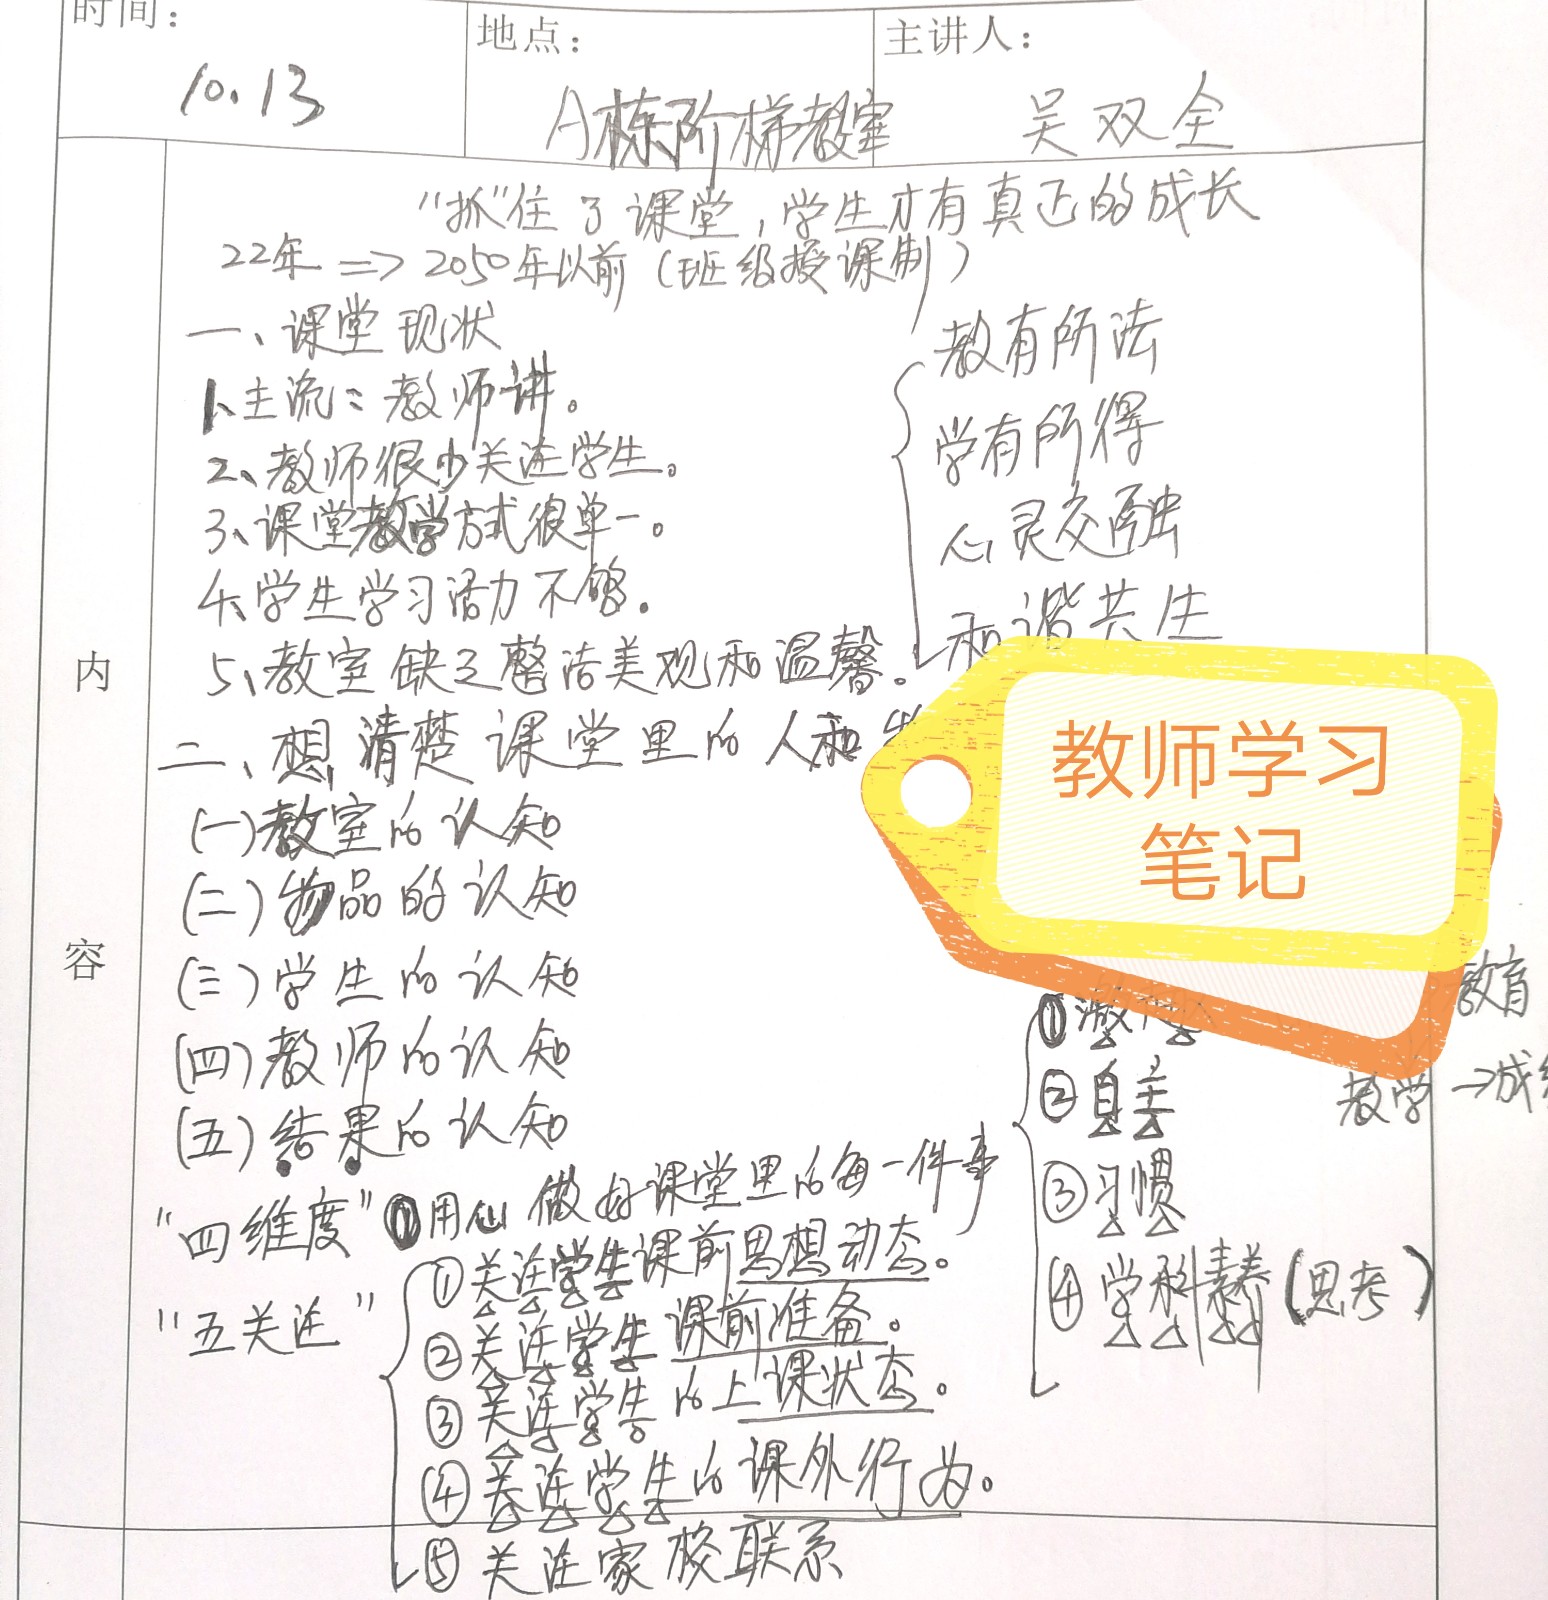 时间：
10.13
地点：
A栋阶梯教室
主讲人：
吴双全
"抓"住了课堂，学生才有真正的成长
22年 => 2050年以前（班级授课制）
一、课堂现状
1、主流：教师讲。
2、教师很少关注学生。
3、课堂教学方式很单一。
4、学生学习活力不够。
5、教室缺乏整洁美观和温馨。
教有所法
学有所得
心灵交融
和谐共生
二、想清楚课堂里的人和
教师学习
笔记
内
容
(一)教室的认知
(二)物品的认知
(三)学生的认知
(四)教师的认知
(五)结果的认知
教育
教学→成
①激
②自主
③习惯
④学科素养(思考)
"四维度" ①用心做好课堂里的每一件事
"五关注"
①关注学生课前思想动态。
②关注学生课前准备。
③关注学生的上课状态。
④关注学生的课外行为。
⑤关注家校联系